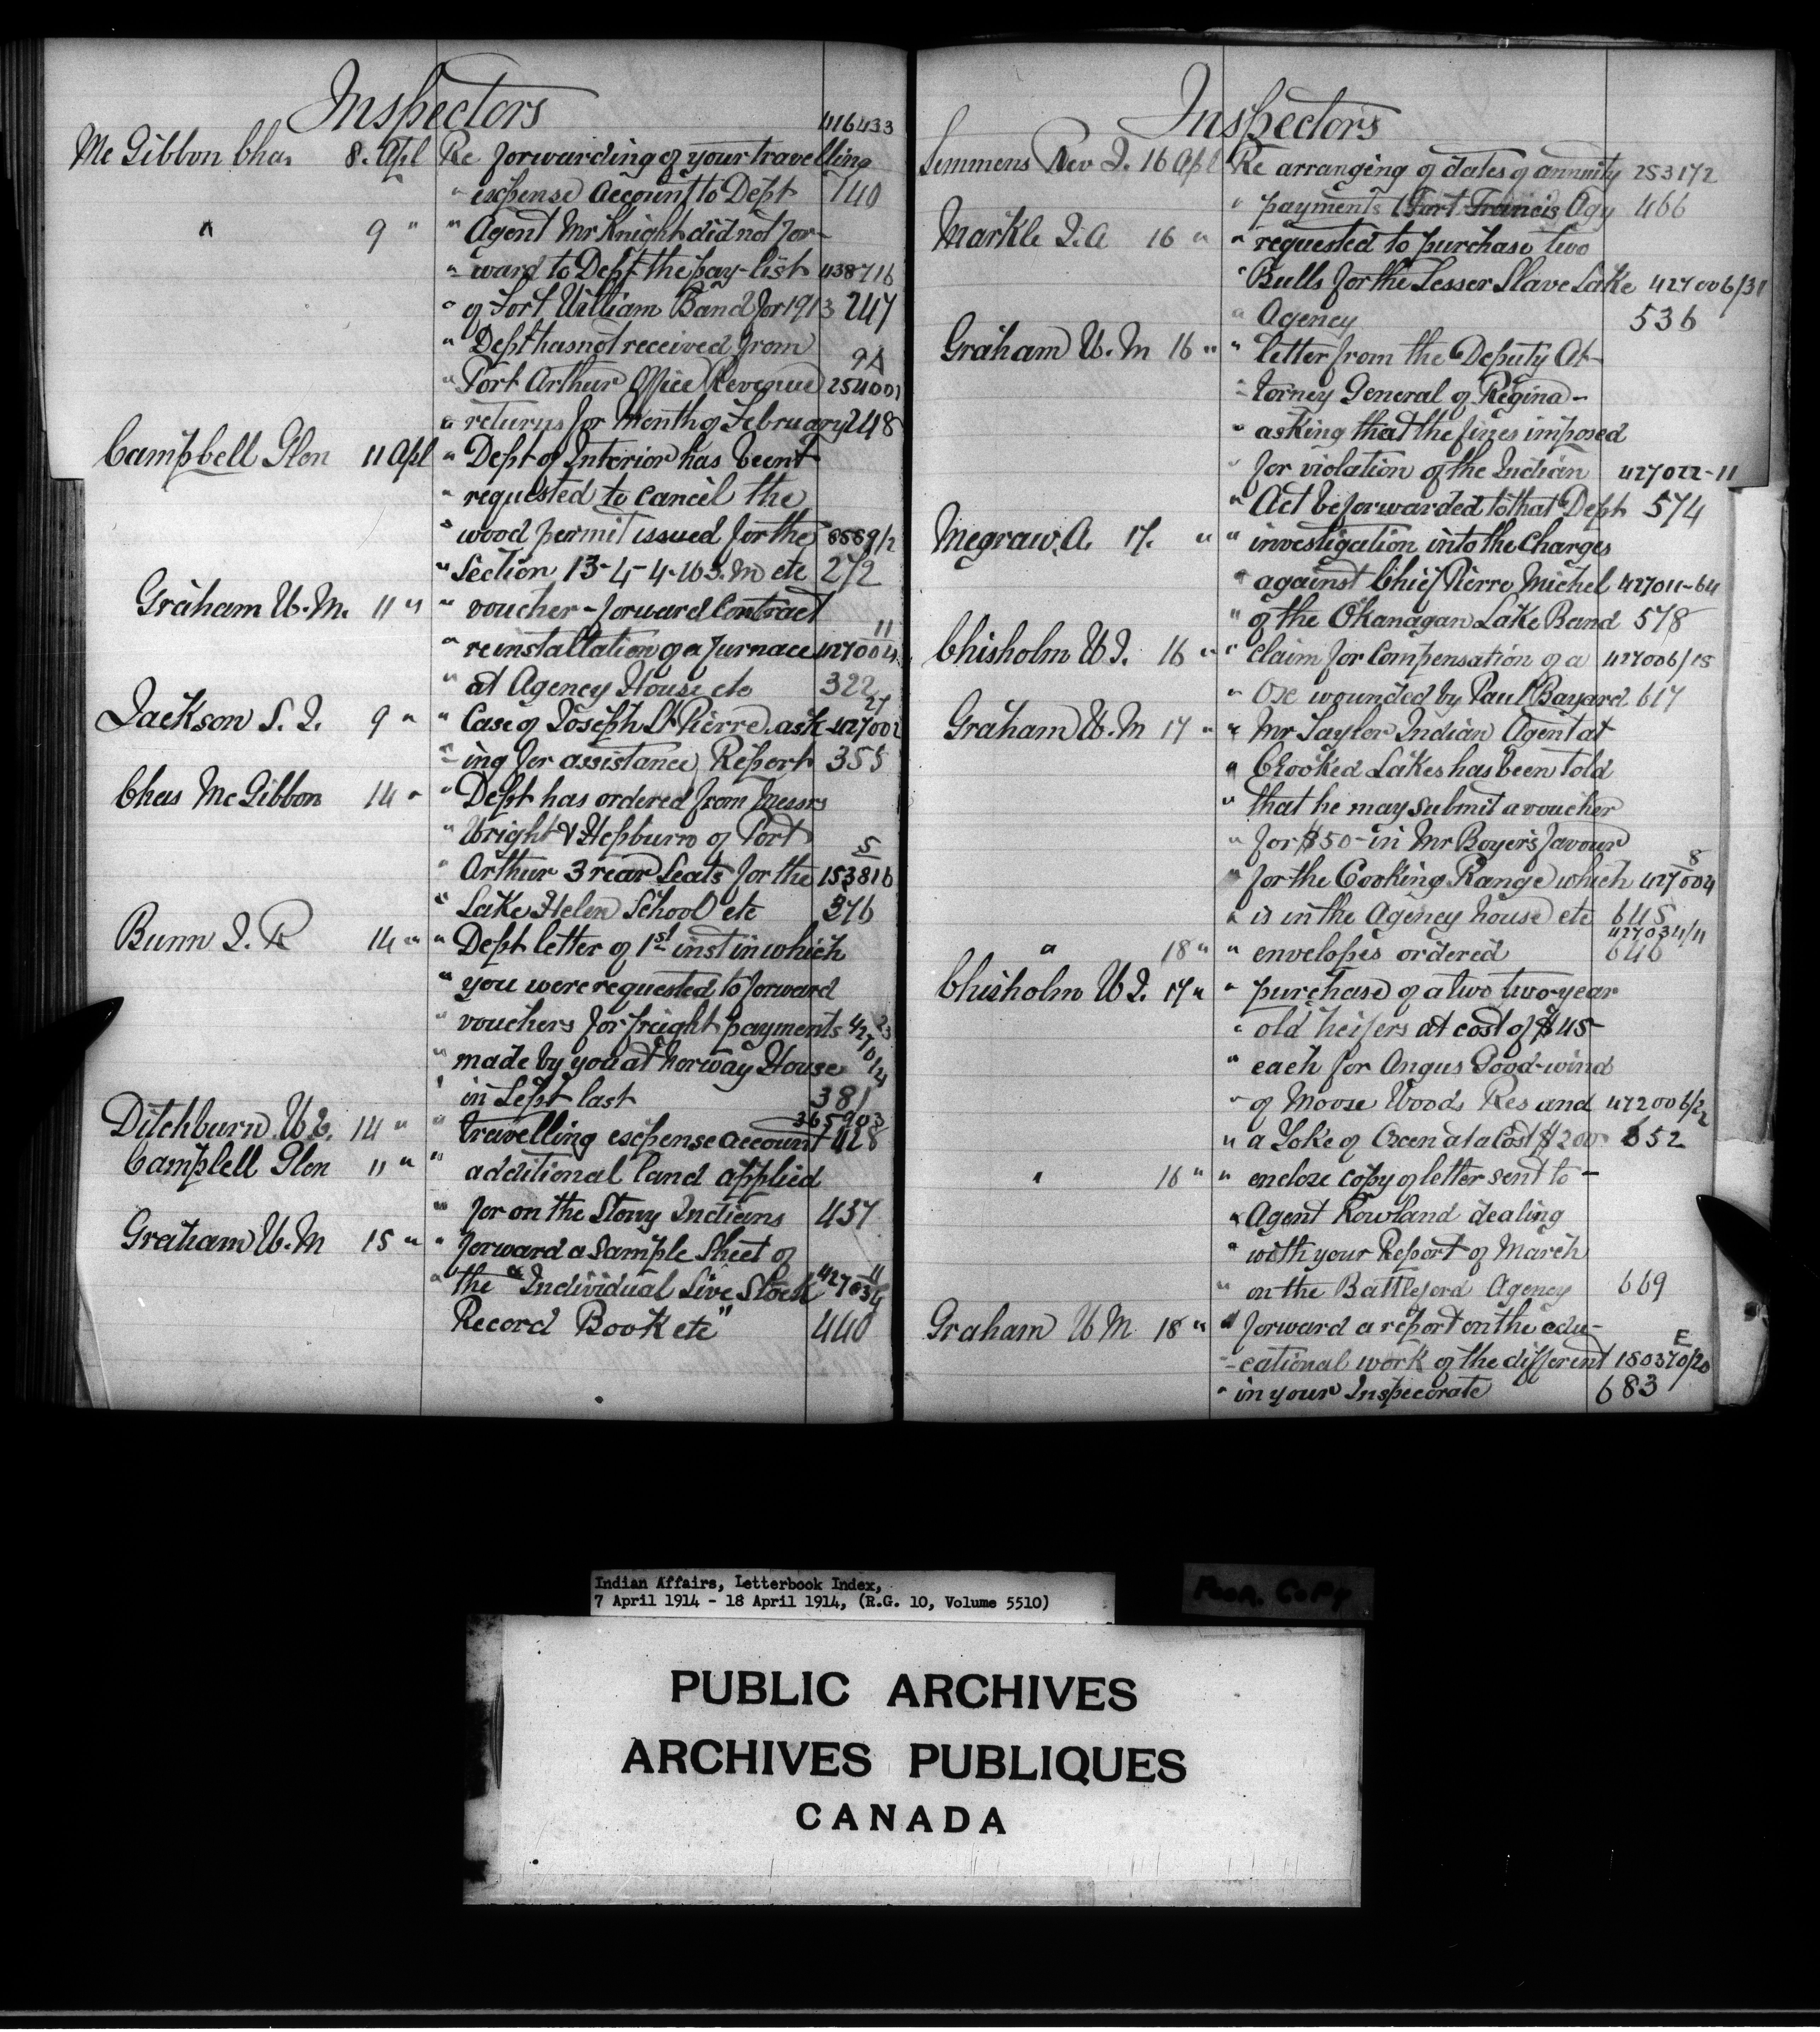 Inspectors
416433
Mc Gibbon Chas 8. Apl Re forwarding of your travelling
" expense account to Dept 140
" 9 " " Agent Mr Knight did not for-
- ward to Dept the pay-list 438716
" of Fort William Band for 1913 247
" Dept has not received from 9A
" Port Arthur Office Revenue 254001
" returns for month of February 248
Campbell Glen 11 Apl " Dept of Interior has been
" requested to cancel the
" wood permit issued for the 8889/2
" Section 13-4-4-W3.M etc 272
Graham W.M. 11 " " voucher - forward Contract 11
" re installation of a furnace 427004
" at Agency House etc 322
Jackson S. J. 9 " " Case of Joseph St Pierre ask- 427002 27
- ing for assistance, Report 355
Chas McGibbon 14 " " Dept has ordered from Messrs
" Wright & Hepburn of Port 5
" Arthur 3 rear Seats for the 153816
" Lake Helen School etc 376
Bunn J. R 14 " " Dept letter of 1st inst in which
" you were requested to forward
" vouchers for freight payments 427014 23
" made by you at Norway House
" in Sept last 381
365903
Ditchburn W.E. 14 " " travelling expense account 428
Campbell Glen 11 " " additional land applied
" for on the Stony Indians 437
Graham W.M 15 " " forward a sample sheet of 11
" the "Individual Live Stock 427034
Record Book etc" 440
Inspectors
Semmens Rev J. 16 Apl Re arranging of dates of annuity 253172
" payments (Fort Francis Agy 466
Markle J.A 16 " " requested to purchase two
" Bulls for the Lesser Slave Lake 427006/31
" Agency 536
Graham W.M 16 " " letter from the Deputy At-
- torney General of Regina -
" asking that the fines imposed
" for violation of the Indian 427022-11
" Act be forwarded to that Dept 574
Megraw, A. 17. " " investigation into the charges
" against Chief Pierre Michel 427011-64
" of the Okanagan Lake Band 578
Chisholm W J. 16 " " Claim for Compensation of a 427006/15
" Ox wounded by Paul Bayard 617
Graham W.M 17 " " Mr Taylor Indian Agent at
" Crooked Lakes has been told
" that he may submit a voucher
" for $50- in Mr Boyer's favour
" for the Cooking Range which 427004 8
" is in the Agency house etc 645
427034/11
" 18 " " envelopes ordered 646
Chisholm W J. 17 " " purchase of a two two-year
" old heifers at cost of $45-
" each for Angus Good-wind
" of Moose Woods Res and 472006/22
" a Yoke of Oxen at a Cost $200 652
" 16 " " enclose copy of letter sent to -
" Agent Rowland dealing
" with your Report of March
" on the Battleford Agency 669
Graham W M 18 " " forward a report on the edu-
E
- cational work of the different 150370/20
" in your Inspecorate 683
Indian Affairs, Letterbook Index,
7 April 1914 - 18 April 1914, (R.G. 10, Volume 5510)
Poor. Copy
PUBLIC ARCHIVES
ARCHIVES PUBLIQUES
CANADA